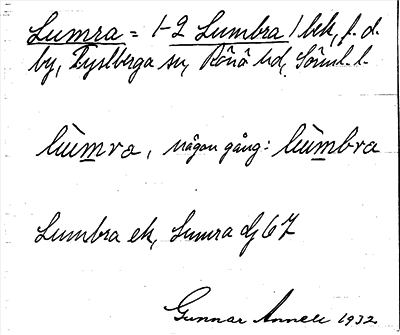 Lumra = 1-2 Lumbra 1 bek, f. d.
by, Dystberga su, Rönö hd, Sörml. l.
lùmra, någon gång: lùmbra
Lumbra ek, Lumra dj 67
Gunnar Annell 1932